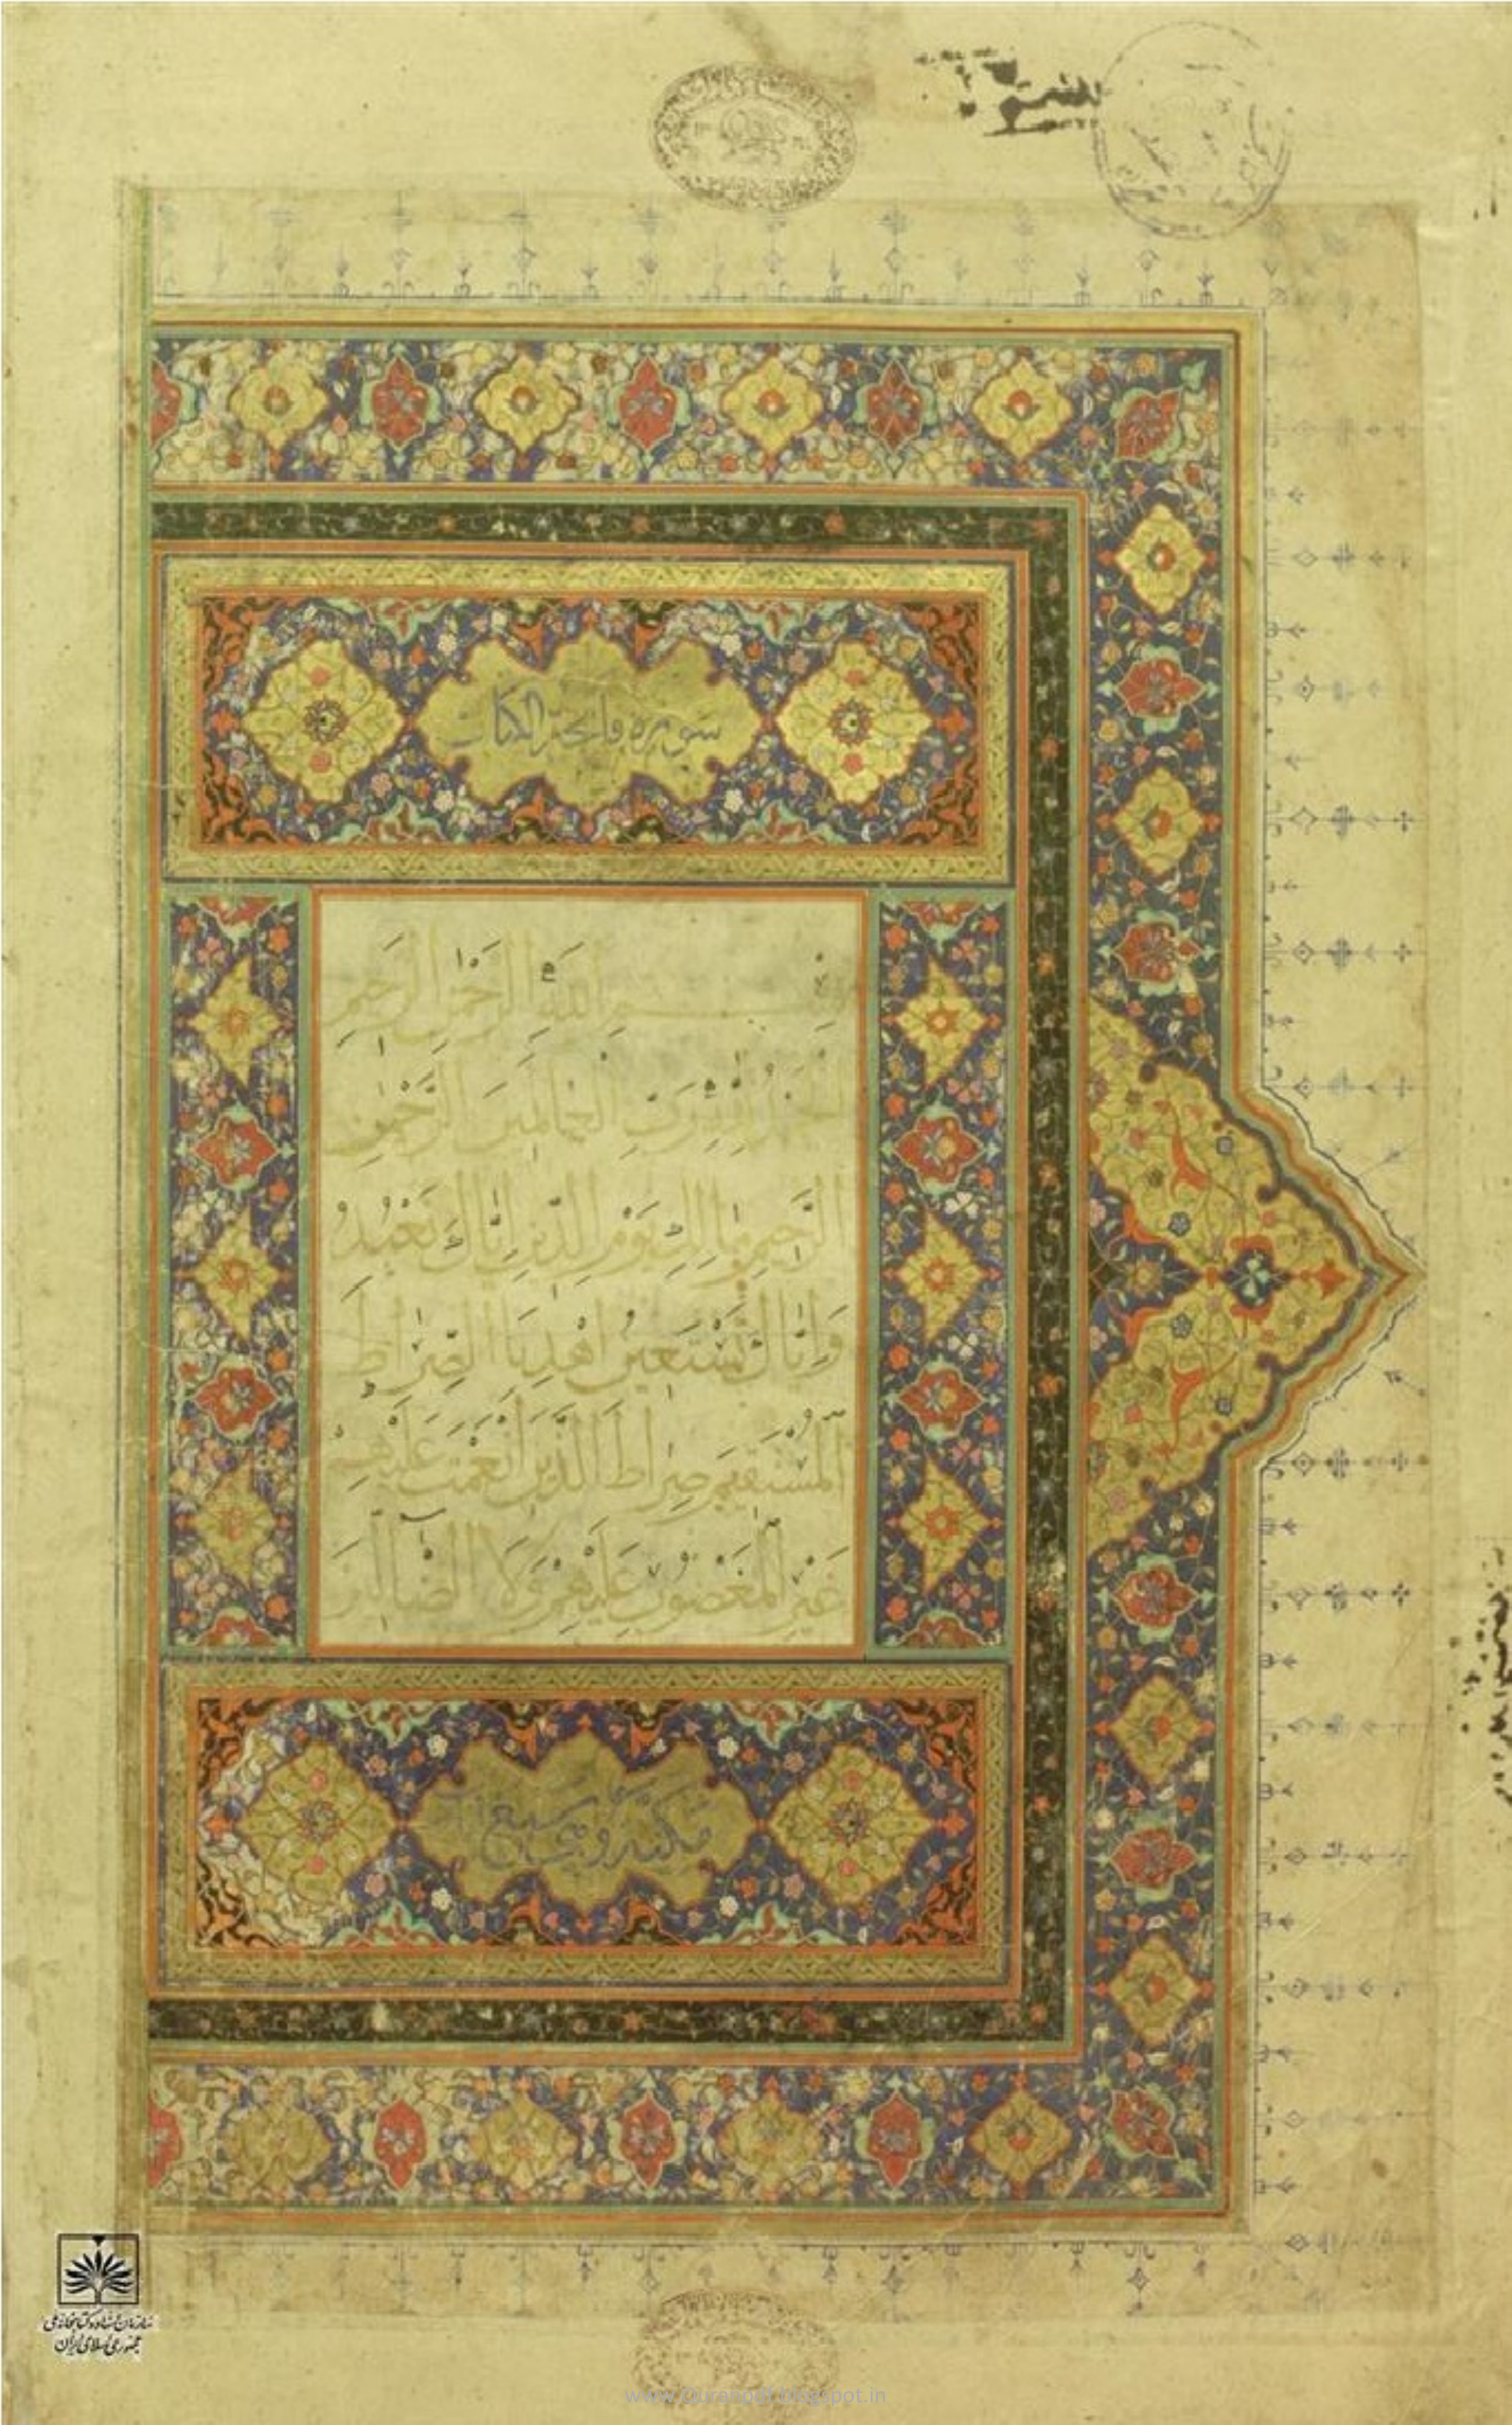 سوره فاتحة الكتاب
بِسْمِ اللهِ الرَّحْمٰنِ الرَّحِيمِ
الحمد لله رَبِّ العالمين الرَّحْمٰنِ
الرَّحِيمِ مالك يَوْمِ الدِّينِ اِيّاكَ نَعْبُدُ
وَاِيّاكَ نَسْتَعِينُ اهْدِنَا الصِّرَاطَ
المُسْتَقِيمَ صِرَاطَ الَّذِينَ اَنْعَمْتَ عَلَيْهِمْ
غَيْرِ المَغْضُوبِ عَلَيْهِمْ وَلَا الضَّالِّينَ
سبع
سازمان اسناد و کتابخانه ملی
جمهوری اسلامی ایران
www.Quranpdf.blogspot.in